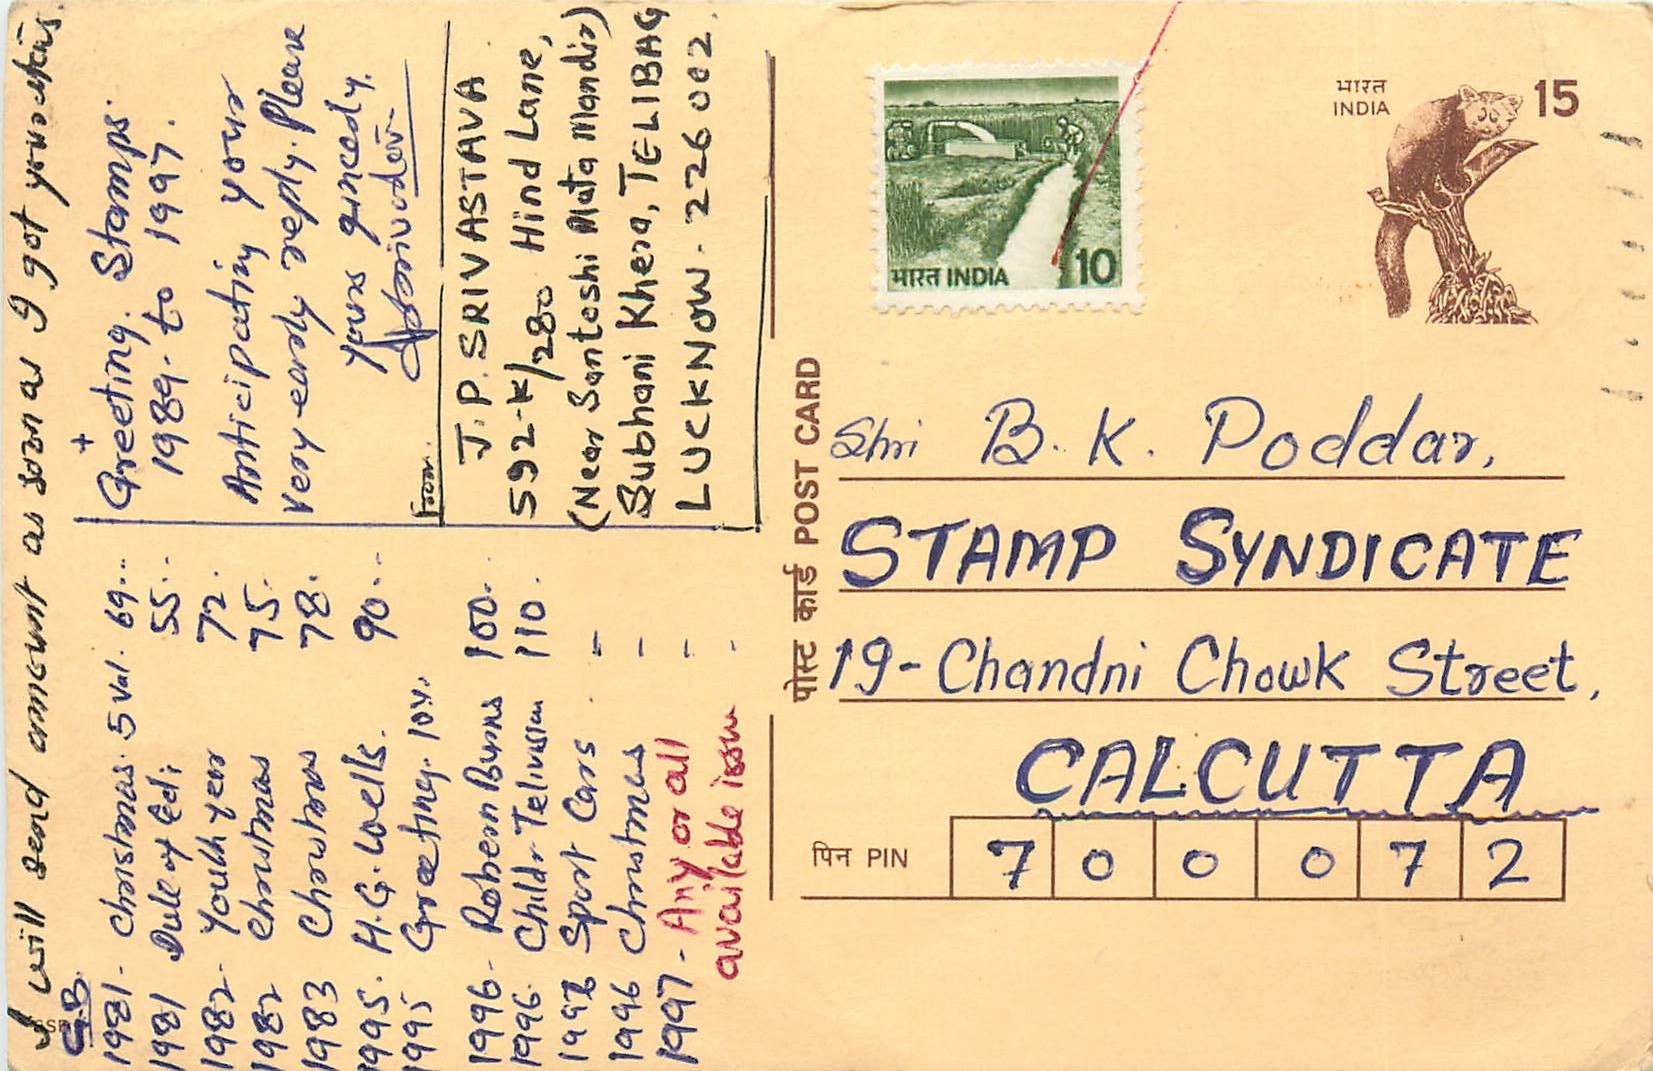 भारत
INDIA
15
भारत INDIA 10
पोस्ट कार्ड POST CARD
Shri B. K. Poddar,
STAMP SYNDICATE
19-Chandni Chowk Street,
CALCUTTA
पिन PIN 7 0 0 0 7 2
I will send amount as soon as I got your stamps.
G.B.
1981- Christmas. 5 Val. 69...
1981 Duke of Edi: 55..
1982- Youth year 72.
1982 Christmas 75.
1983 Christmas 78.
1995. H.G. Wells. 90..
1995 Greeting. 10v.
1996- Robern Burns 100.
1996. Child. Telivision 110.
1996 Sport Cars -
1996 Christmas -
1997- Any or all -
available issue -
+
Greeting. Stamps.
1989- to 1997.
Anticipating your
very early reply. Please
yours sincerely.
From.
J. P. SRIVASTAVA
592-K/280 Hind Lane,
(Near Santoshi Mata Mandir)
Subhani Khera, TELIBAG
LUCKNOW. 226002.